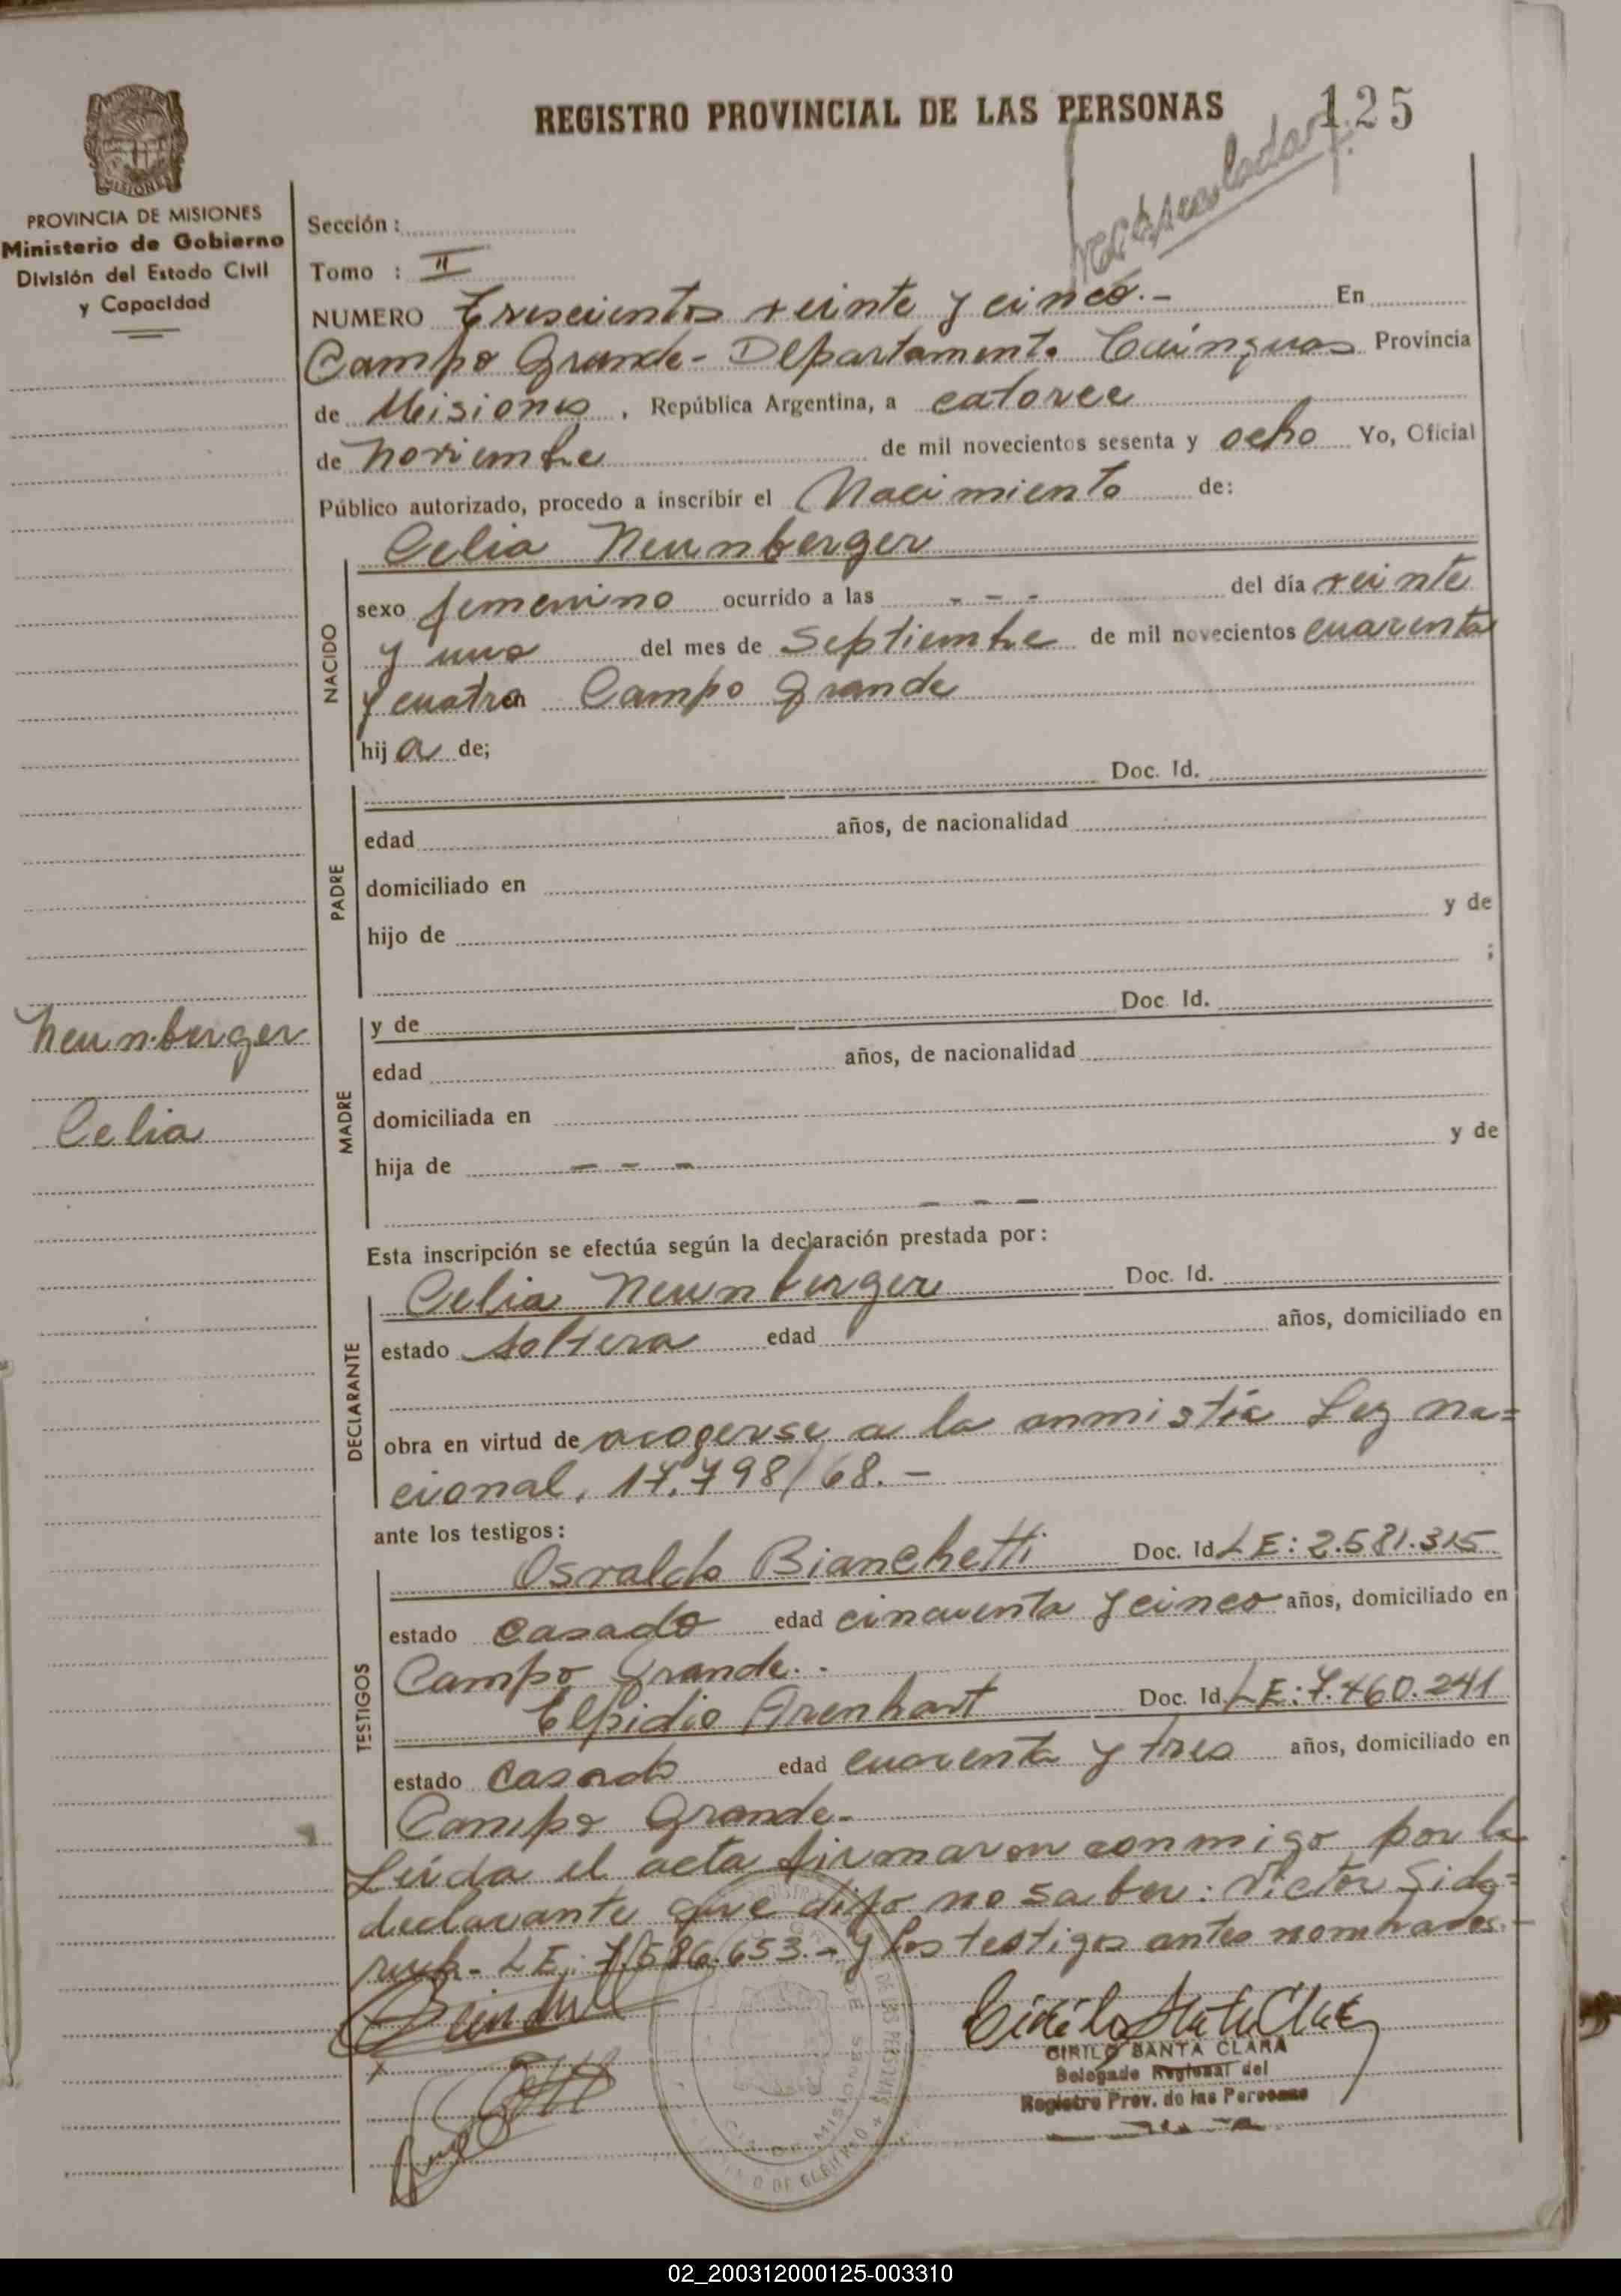 REGISTRO PROVINCIAL DE LAS PERSONAS
125
PROVINCIA DE MISIONES
Ministerio de Gobierno
División del Estado Civil
y Capacidad
Sección :
Tomo : II
NUMERO Trescientos veinte y cinco.- En
Campo Grande - Departamento Cainguas Provincia
de Misiones, República Argentina, a catorce
de noviembre de mil novecientos sesenta y ocho Yo, Oficial
Público autorizado, procedo a inscribir el Nacimiento de:
Celia Neunberger
NACIDO
sexo femenino ocurrido a las - - - del día veinte
y uno del mes de Septiembre de mil novecientos cuarenta
y cuatro en Campo Grande
hij a de;
PADRE
Doc. Id.
edad años, de nacionalidad
domiciliado en
hijo de y de
;
MADRE
y de Doc. Id.
edad años, de nacionalidad
domiciliada en
hija de - - - y de
- - -
Neunberger
Celia
Esta inscripción se efectúa según la declaración prestada por:
DECLARANTE
Celia Neunberger Doc. Id.
estado soltera edad años, domiciliado en
obra en virtud de acogerse a la anmistia Ley na=
cional. 17.798/68.-
ante los testigos:
TESTIGOS
Osvaldo Bianchetti Doc. Id LE: 2.581.315
estado casado edad cincuenta y cinco años, domiciliado en
Campo Grande.-
Elpidio Arenhart Doc. Id LE: 7.460.241
estado casado edad cuarenta y tres años, domiciliado en
Campo Grande.-
Leida el acta firmaron conmigo por la
declarante que dijo no saber: Victor Sido=
ruk - LE: 7.586.653.- y los testigos antes nombrados.-
CIRILO SANTA CLARA
Delegado Regional del
Registro Prov. de las Personas
02_200312000125-003310